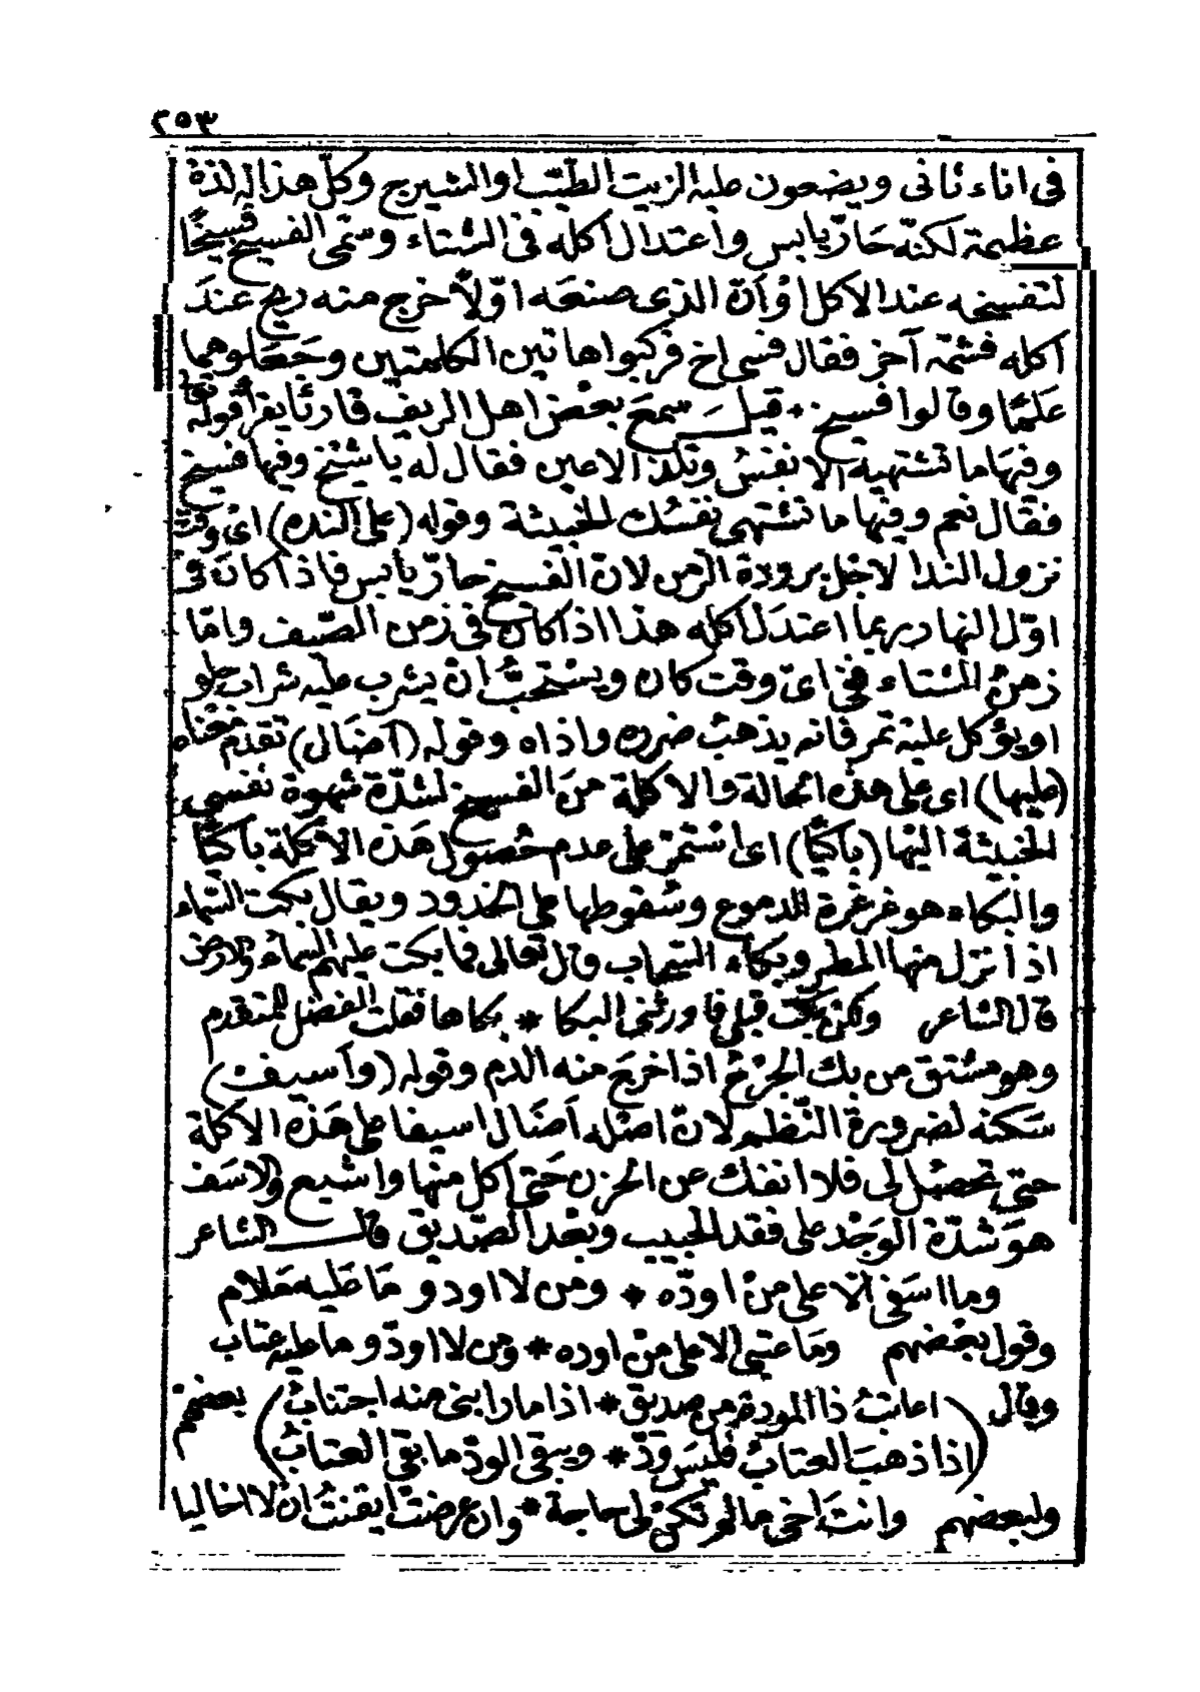 ٢٥٣
فى اناء ثانى ويضعون عليه الزيت الطيّب او الشيرج وكلّ هذا له لذة
عظيمة لكنّه حَارّ يابس واعتدال اكله فى الشتاء وسمّى الفسيخ فسيخًا
لتفسيخه عند الاكل اوْ اَنّ الذى صنعَه اوّلاً خرج منه ريح عندَ
اكله فشمّه آخر فقال فسى اخ فركبوا هاتين الكلمتين وجَعَلوهما
علمًا وقالوا فسيخ * قيل سمعَ بعض اهل الريف قارئًا يقرأ قولَه تعَا
وفيهَا ما تشتهيه الانفسُ وتلذ الاعين فقال له يا شيْخ وفيها فسيخ
فقال نعم وفيها ما تشتهى نفسُك الخبيثة وقوله (على النده) اىْ وَقت
نزول الندا لاجل برودة الزمن لانّ الفسيخ حارّ يابس فاذا كانَ فى
اوّل النهار ربما اعتدَل اكله هذا اذا كان فى زمن الصّيف وامّا
زمنُ الشتاء ففى اىّ وقت كان ويستحبُّ انْ يشرب عليه شراب حلو
او يؤكل عليه تمر فانه يذهبُ ضرره واذاه وقوله (آضَال) تقدّم معْناه
(عليها) اى على هذه الحالة والاكلة منَ الفسيخ لشدّة شهوة نفسى
الخبيثة اليْها (باكيًا) اى استمرّ على عدم حُصول هَذه الأكلة باكيًا
والبكاء هو غرغرة الدموع وسُقوطها على الخدود ويقال بكت السّماء
اذا نزل منها المطر وبكاء السّحاب قال تعالى فما بكت عليهم السّماءُ والارض
قال الشاعر ولكن بكت قبلى فاورثنى البكا * بكاها فقلت الفضل للمتقدم
وهو مشتق من بك الجرْحُ اذا خرجَ منه الدم وقوله (وآسيف)
سَكنه لضرورة النّظم لانّ اصله اَضَال اسيفا على هَذه الاكلة
حتى تحصُل لى فلا انفك عن الحزن حَتى آكل منها واشبع والاسَف
هوَ شدّة الوَجْد على فقد الحبيب وبعْد الصّديق قال الشاعر
وما اسَفى الّا على منْ اودّه * ومن لا اود و مَا عَليه مَلام
وقول بعْضهم ومَا عتبى الا على من اوده * ومن لا اودّ و ما عليه عتاب
وقال (اعاتبُ ذا المودة من صديق * اذا ما رابنى منه اجتنابُ) بعضهمْ
(اذا ذهبَ العتابُ فليسَ ودّ * ويبقى الودّ ما بقى العتابُ)
ولبعضهم وانتَ اخى ما لم تكنْ لى حاجة * وان عرضتْ ايقنتُ انْ لا اخا ليا